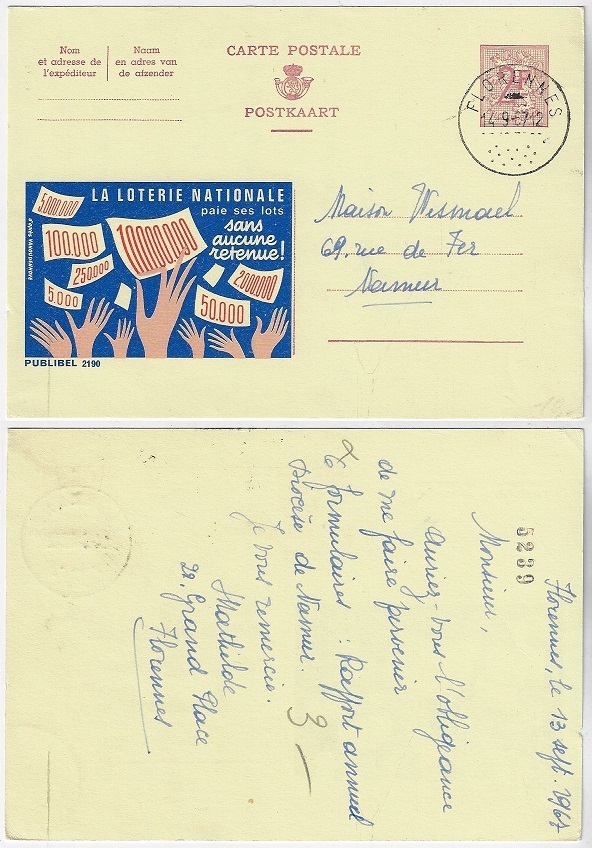 Nom
et adresse de
l'expéditeur
Naam
en adres van
de afzender
CARTE POSTALE
POSTKAART
2F
FLORENNES
14-9-67 12
LA LOTERIE NATIONALE
paie ses lots
sans
aucune
retenue!
5000.000
100.000
10.000.000
250.000
5.000
2000.000
50.000
PUBLIBEL 2190
Maison Wesmael
69, rue de Fer
Namur
5299
Florennes, le 13 sept. 1967
Monsieur,
Auriez-vous l'obligeance
de me faire parvenir
formulaires : Rapport annuel
Diocèse de Namur.
Je vous remercie.
Mathilde
22, Grand Place
Florennes
3 —